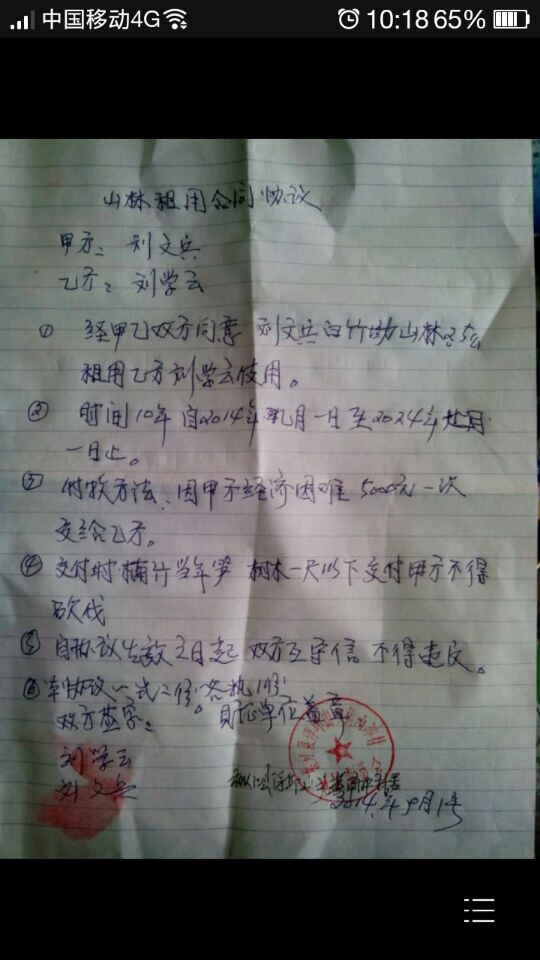 中国移动4G 10:18 65%
山林租用合同协议
甲方：刘文兵
乙方：刘学云
① 经甲乙双方同意 刘文兵白竹坳山林
租用乙方刘学云使用。
② 时间10年自2014年九月一日至2024年
一日止。
③ 付款方法、因甲方经济困难 5000元一次
交给乙方。
④ 交付时楠竹当年笋 树木一尺以下交付甲方不得
砍伐
⑤ 自协议生效之日起 双方互守信 不得违反。
⑥ 本协议一式二份 各执1份
双方签字： 见证单位盖章
刘学云
刘文兵
2014年9月1号